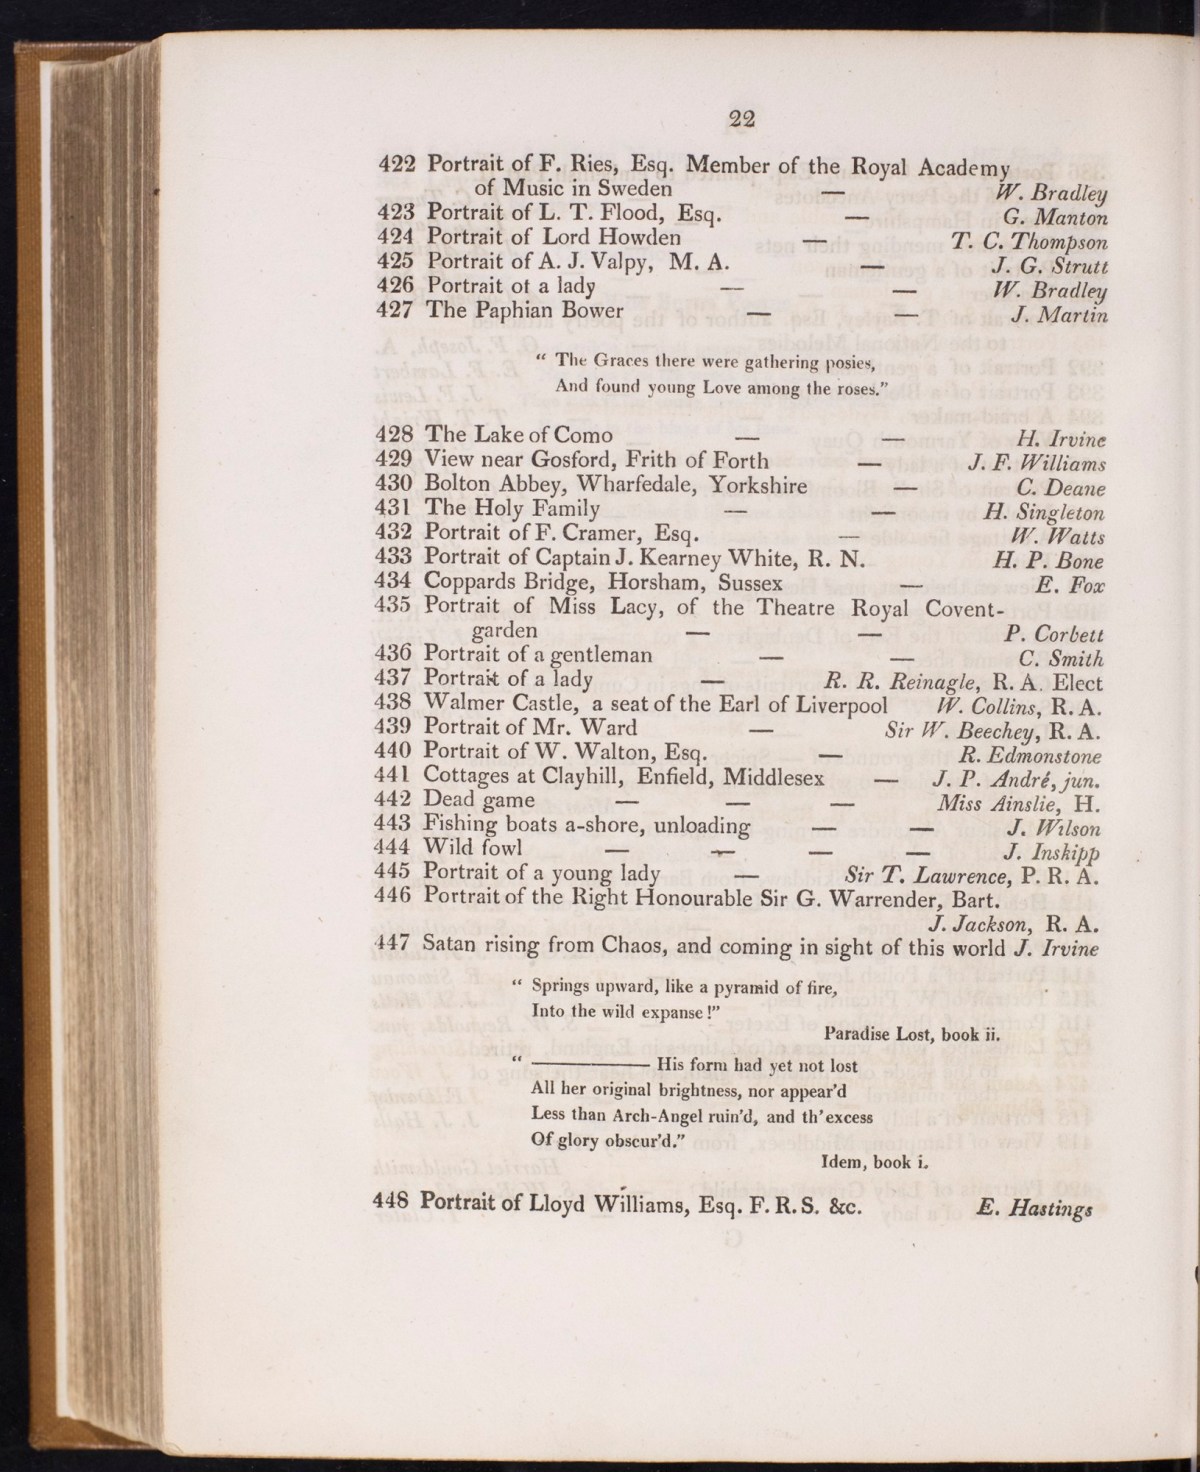 22
422 Portrait of F. Ries, Esq. Member of the Royal Academy
of Music in Sweden — W. Bradley
423 Portrait of L. T. Flood, Esq. — G. Manton
424 Portrait of Lord Howden — T. C. Thompson
425 Portrait of A. J. Valpy, M. A. — J. G. Strutt
426 Portrait of a lady — — W. Bradley
427 The Paphian Bower — — J. Martin
“ The Graces there were gathering posies,
And found young Love among the roses.”
428 The Lake of Como — — H. Irvine
429 View near Gosford, Frith of Forth — J. F. Williams
430 Bolton Abbey, Wharfedale, Yorkshire — C. Deane
431 The Holy Family — — H. Singleton
432 Portrait of F. Cramer, Esq. — W. Watts
433 Portrait of Captain J. Kearney White, R. N. H. P. Bone
434 Coppards Bridge, Horsham, Sussex — E. Fox
435 Portrait of Miss Lacy, of the Theatre Royal Covent-
garden — — P. Corbett
436 Portrait of a gentleman — — C. Smith
437 Portrait of a lady — R. R. Reinagle, R. A. Elect
438 Walmer Castle, a seat of the Earl of Liverpool W. Collins, R. A.
439 Portrait of Mr. Ward — Sir W. Beechey, R. A.
440 Portrait of W. Walton, Esq. — R. Edmonstone
441 Cottages at Clayhill, Enfield, Middlesex — J. P. André, jun.
442 Dead game — — — Miss Ainslie, H.
443 Fishing boats a-shore, unloading — — J. Wilson
444 Wild fowl — — — — J. Inskipp
445 Portrait of a young lady — Sir T. Lawrence, P. R. A.
446 Portrait of the Right Honourable Sir G. Warrender, Bart.
J. Jackson, R. A.
447 Satan rising from Chaos, and coming in sight of this world J. Irvine
“ Springs upward, like a pyramid of fire,
Into the wild expanse !”
Paradise Lost, book ii.
“ ———— His form had yet not lost
All her original brightness, nor appear’d
Less than Arch-Angel ruin’d, and th’ excess
Of glory obscur’d.”
Idem, book i.
448 Portrait of Lloyd Williams, Esq. F. R. S. &c. E. Hastings